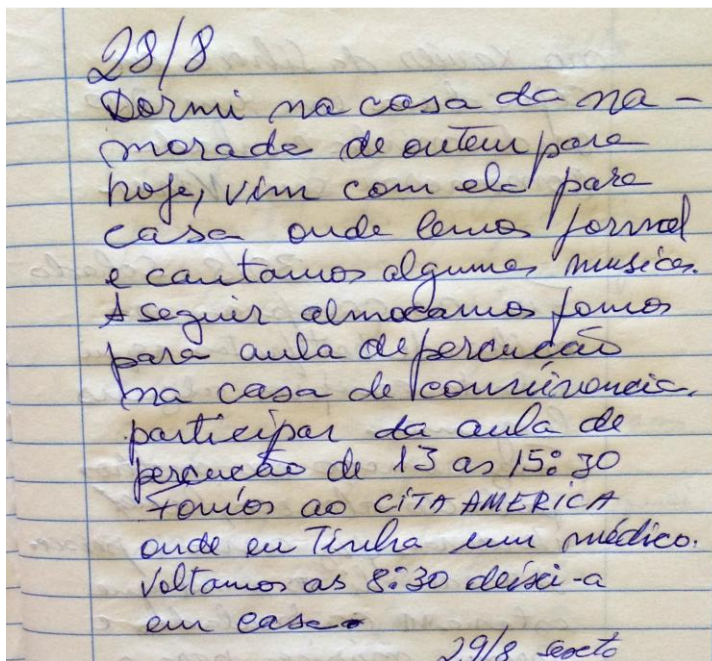 28/8
Dormi na casa da na-
morada de ontem para
hoje, vim com ela para
casa onde lemos jornal
e cantamos algumas musicas.
A seguir almocamos fomos
para aula de percucão
na casa de convivencia.
participar da aula de
percucão de 13 as 15:30
Fomos ao CITTA AMERICA
onde eu Tinha um médico.
Voltamos as 8:30 deixei-a
em casa.
29/8 sexta